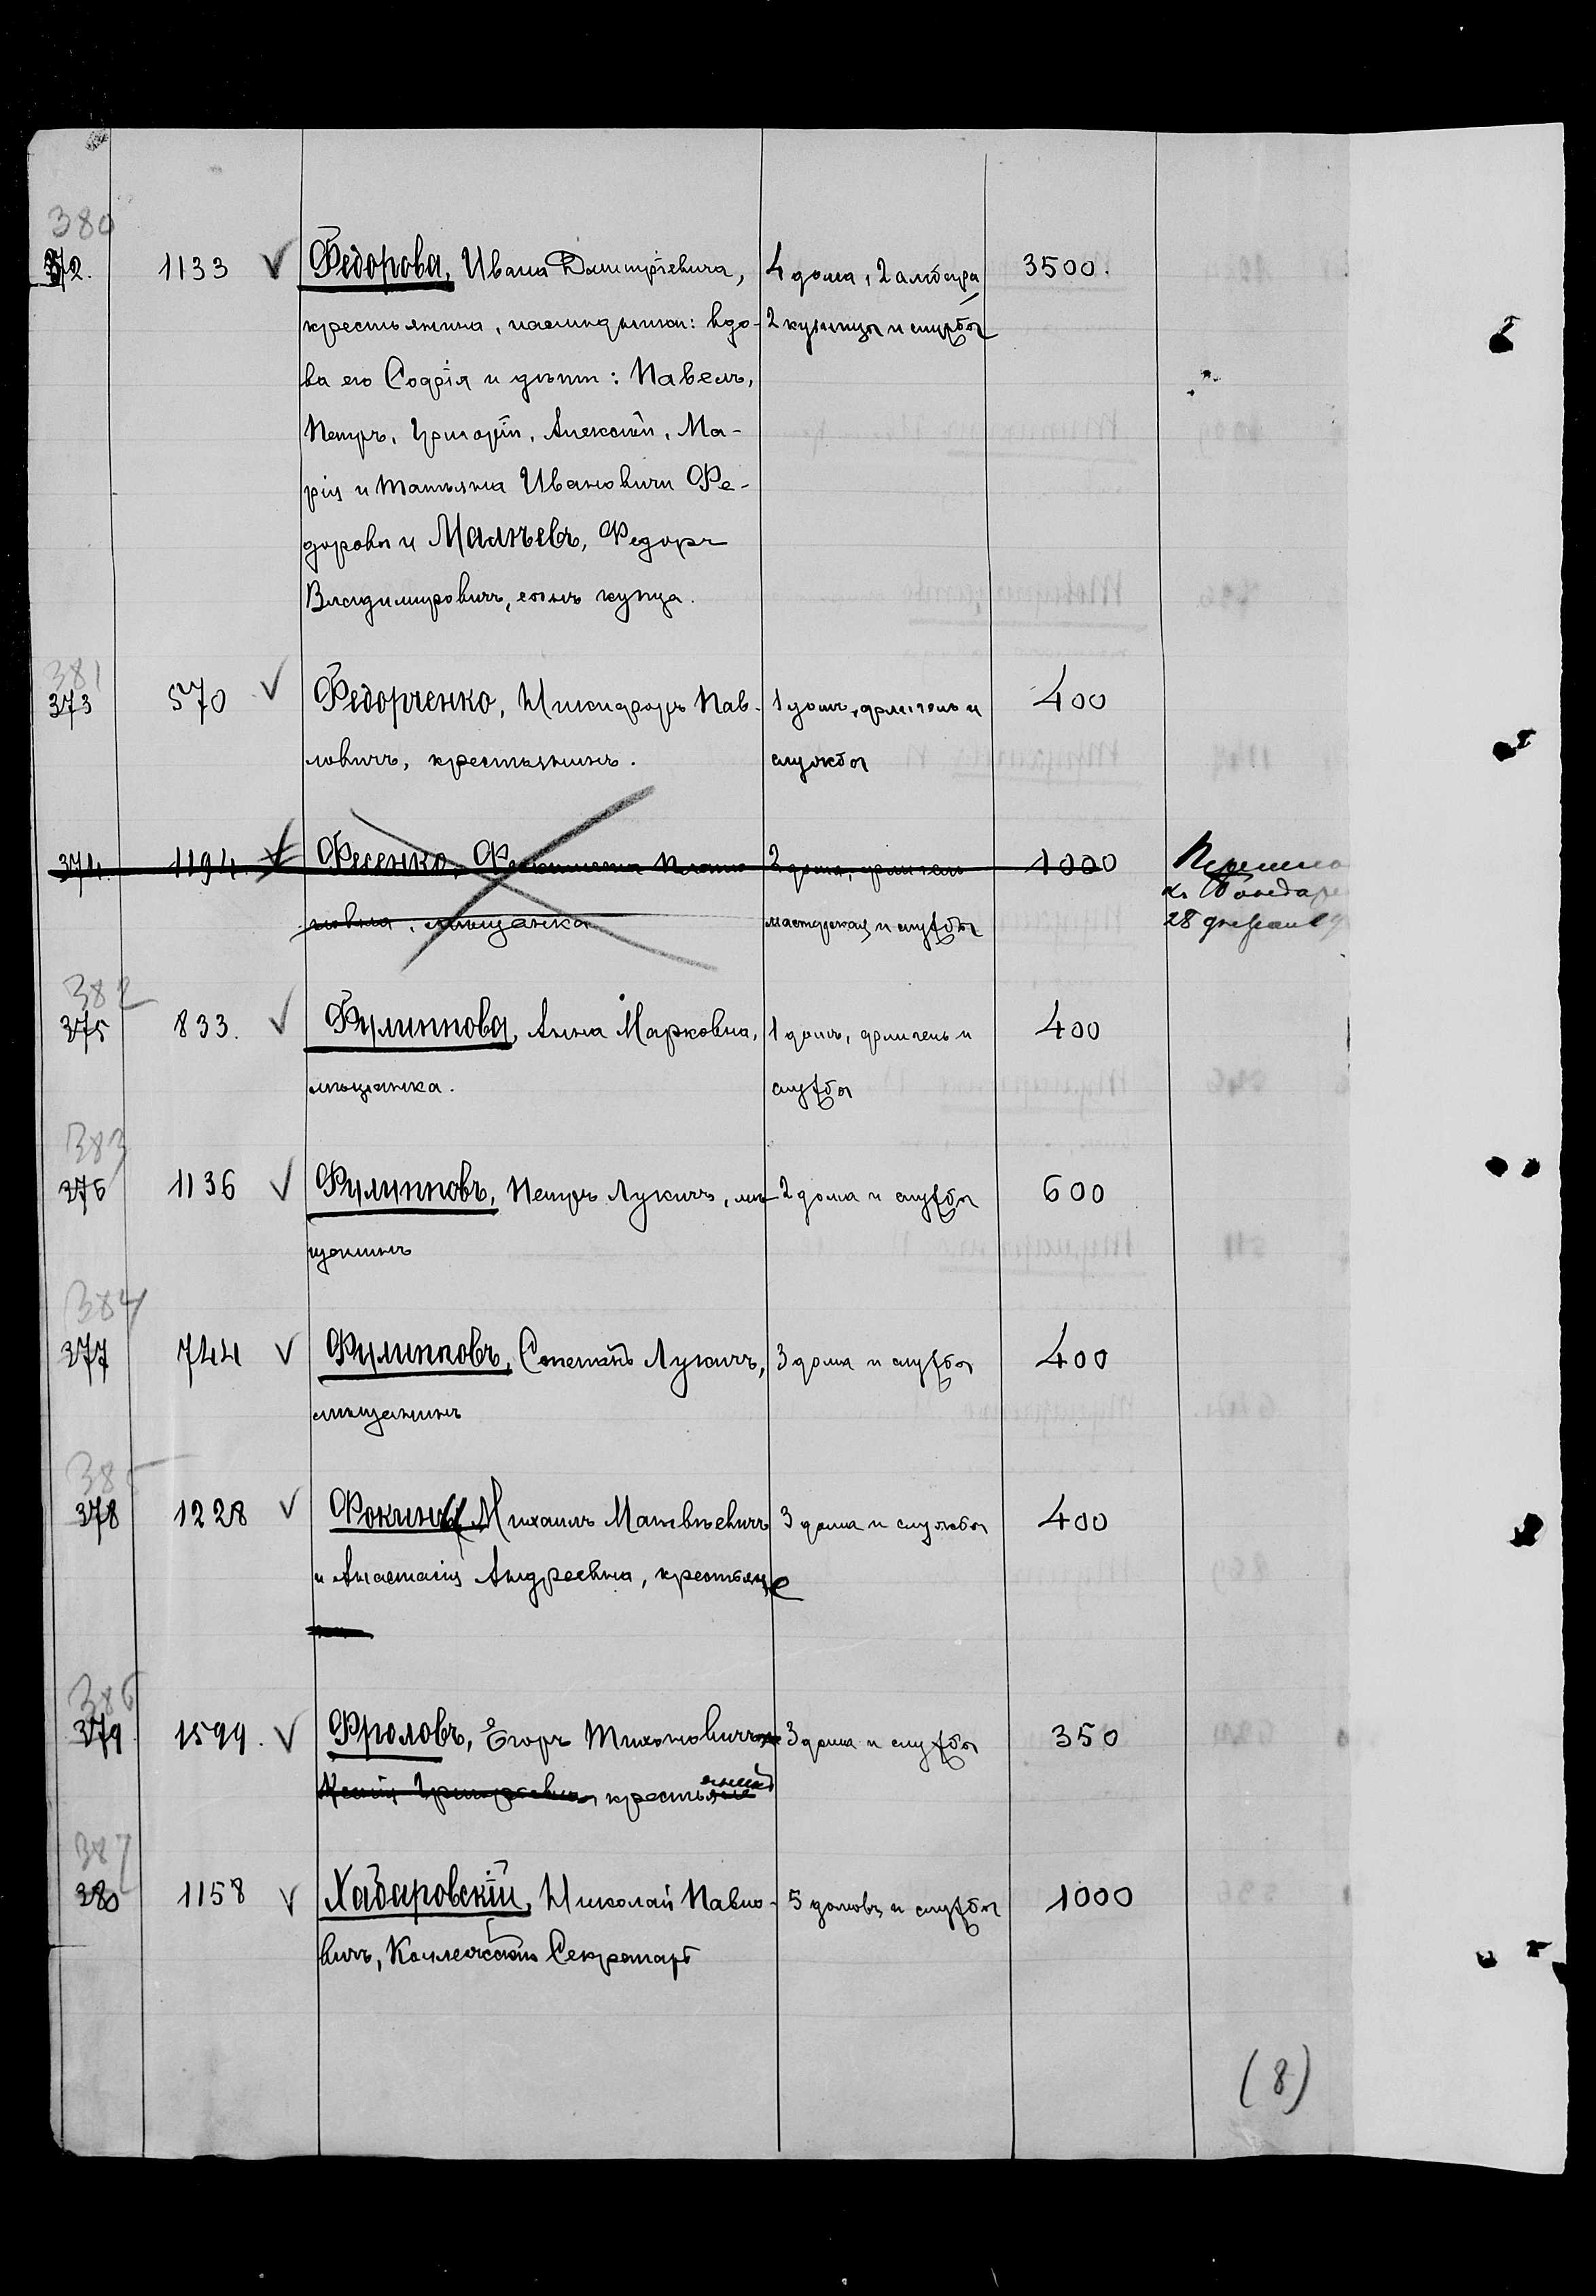 380
372. 1133 V Федорова, Ивана Дмитріевича, 4 дома, 2 амбара 3500.
крестьянина, наслѣдники: вдо- 2 кузницы и службы
ва его Софія и дѣти: Павелъ,
Петръ, Григорій, Алексѣй, Ма-
рія и Татьяна Ивановичи Фе-
доровы и Малѣевъ, Федоръ
Владимировичъ, сынъ купца.
381
373 570 V Федорченко, Никифоръ Пав- 1 домъ, флигель и 400
ловичъ, крестьянинъ. службы
374. 1194 V Фесенко, 2 дома, флигель 1000
мѣщанка мастерская и службы
28 февраля
382
375 833. V Филиппова, Анна Марковна, 1 домъ, флигель и 400
мѣщанка. службы
383
376 1136 V Филипповъ, Петръ Лукичъ, мѣ- 2 дома и службы 600
щанинъ
384
377 744 V Филипповъ, Степанъ Лукичъ, 3 дома и службы 400
мѣщанинъ
385
378 1228 V Фокины, Михаилъ Матвѣевичъ 3 дома и службы 400
и Анастасія Андреевна, крестьяне
386
379 1599. V Фроловъ, Егоръ Тихоновичъ 3 дома и службы 350
Ксенія Григорьевна, крестьянинъ
387
380 1158 V Хабаровскій, Николай Павло- 5 домовъ и службы 1000
вичъ, Коллежскій Секретарь
(8)